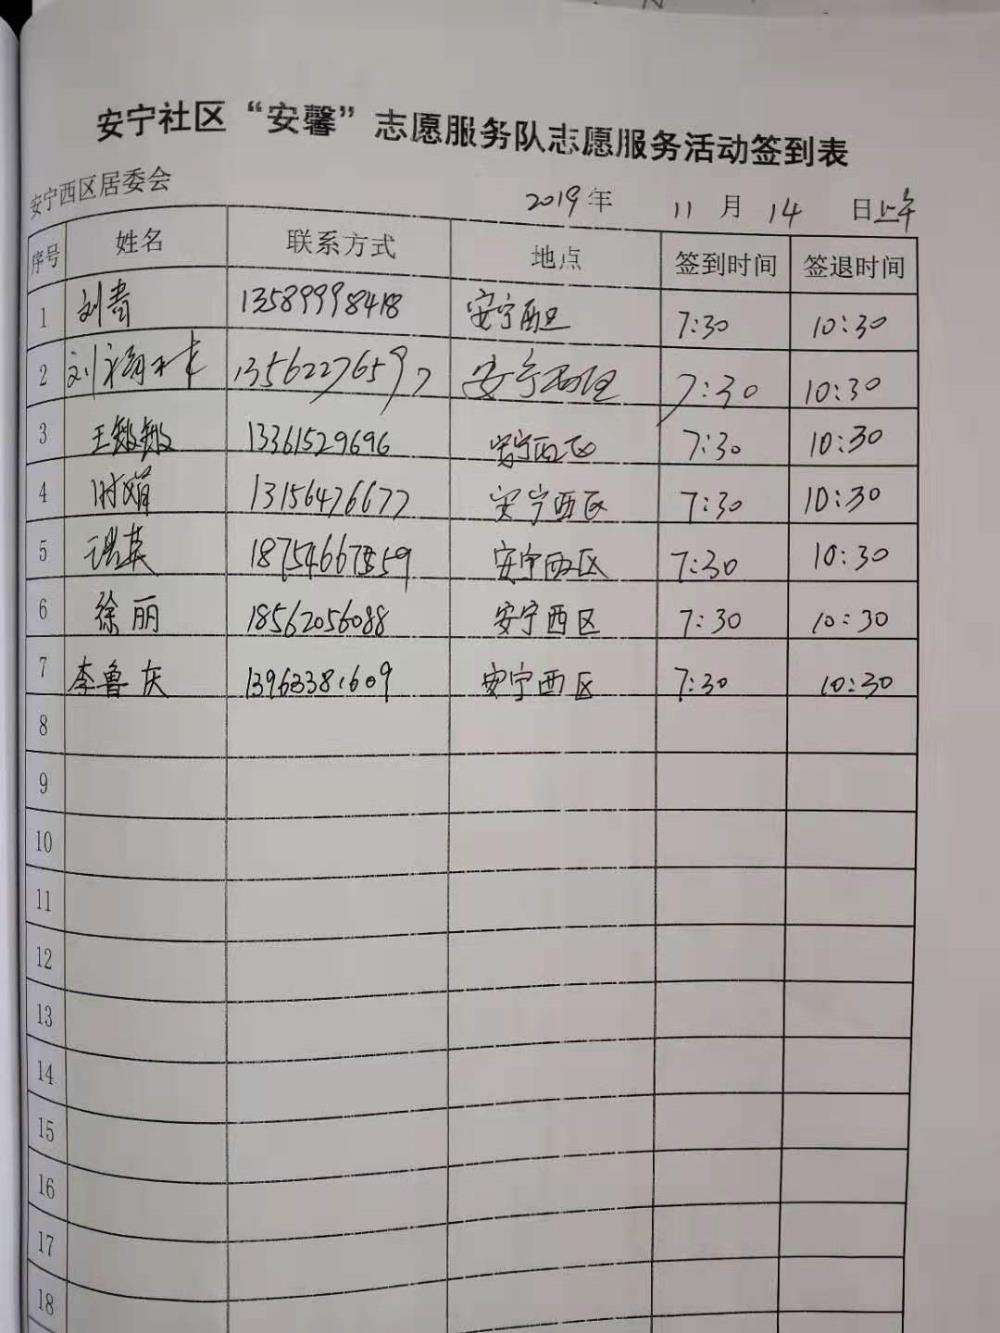 安宁社区“安馨”志愿服务队志愿服务活动签到表
安宁西区居委会 2019年 11月14日上午
序号 姓名 联系方式 地点 签到时间 签退时间
1 刘青 13589998418 安宁西区 7:30 10:30
2 刘 13562276597 安宁西区 7:30 10:30
3 王敏敏 13361529696 安宁西区 7:30 10:30
4 时娟 13156476677 安宁西区 7:30 10:30
5 英 安宁西区 7:30 10:30
6 徐丽 18562056088 安宁西区 7:30 10:30
7 李鲁庆 13963381609 安宁西区 7:30 10:30
8
9
10
11
12
13
14
15
16
17
18